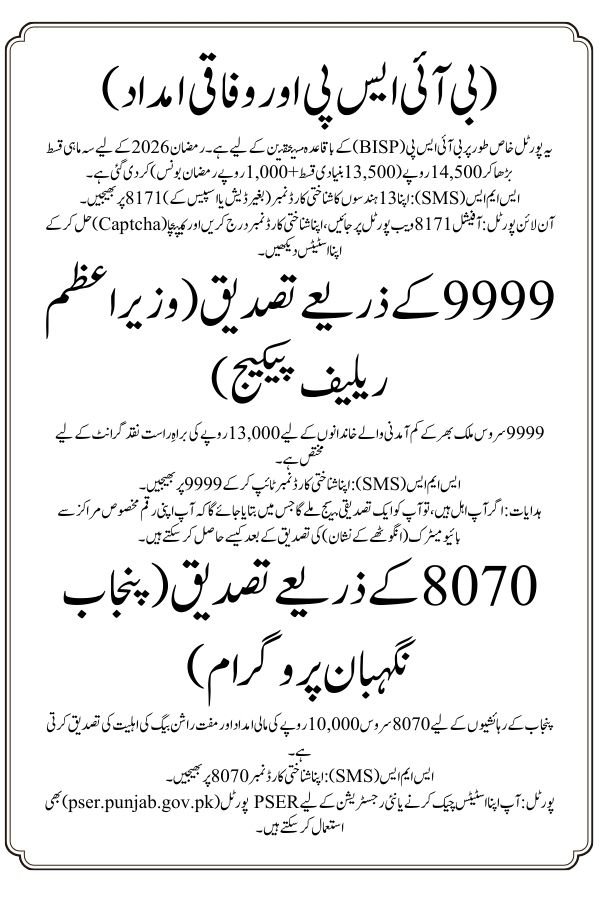 (بی آئی ایس پی اور وفاقی امداد)
یہ پورٹل خاص طور پر بی آئی ایس پی (BISP) کے باقاعدہ مستحقین کے لیے ہے۔ رمضان 2026 کے لیے سہ ماہی قسط
بڑھا کر 14,500 روپے (13,500 بنیادی قسط + 1,000 روپے رمضان بونس) کر دی گئی ہے۔
ایس ایم ایس (SMS): اپنا 13 ہندسوں کا شناختی کارڈ نمبر (بغیر ڈیش یا اسپیس کے) 8171 پر بھیجیں۔
آن لائن پورٹل: آفیشل 8171 ویب پورٹل پر جائیں، اپنا شناختی کارڈ نمبر درج کریں اور کیپچا (Captcha) حل کر کے
اپنا اسٹیٹس دیکھیں۔
9999 کے ذریعے تصدیق (وزیراعظم
ریلیف پیکیج)
9999 سروس ملک بھر کے کم آمدنی والے خاندانوں کے لیے 13,000 روپے کی براہِ راست نقد گرانٹ کے لیے
مختص ہے۔
ایس ایم ایس (SMS): اپنا شناختی کارڈ نمبر ٹائپ کر کے 9999 پر بھیجیں۔
ہدایات: اگر آپ اہل ہیں، تو آپ کو ایک تصدیقی میسج ملے گا جس میں بتایا جائے گا کہ آپ اپنی رقم مخصوص مراکز سے
بائیو میٹرک (انگوٹھے کے نشان) کی تصدیق کے بعد کیسے حاصل کر سکتے ہیں۔
8070 کے ذریعے تصدیق (پنجاب
نگہبان پروگرام)
پنجاب کے رہائشیوں کے لیے 8070 سروس 10,000 روپے کی مالی امداد اور مفت راشن بیگ کی اہلیت کی تصدیق کرتی
ہے۔
ایس ایم ایس (SMS): اپنا شناختی کارڈ نمبر 8070 پر بھیجیں۔
پورٹل: آپ اپنا اسٹیٹس چیک کرنے یا نئی رجسٹریشن کے لیے PSER پورٹل (pser.punjab.gov.pk) بھی
استعمال کر سکتے ہیں۔